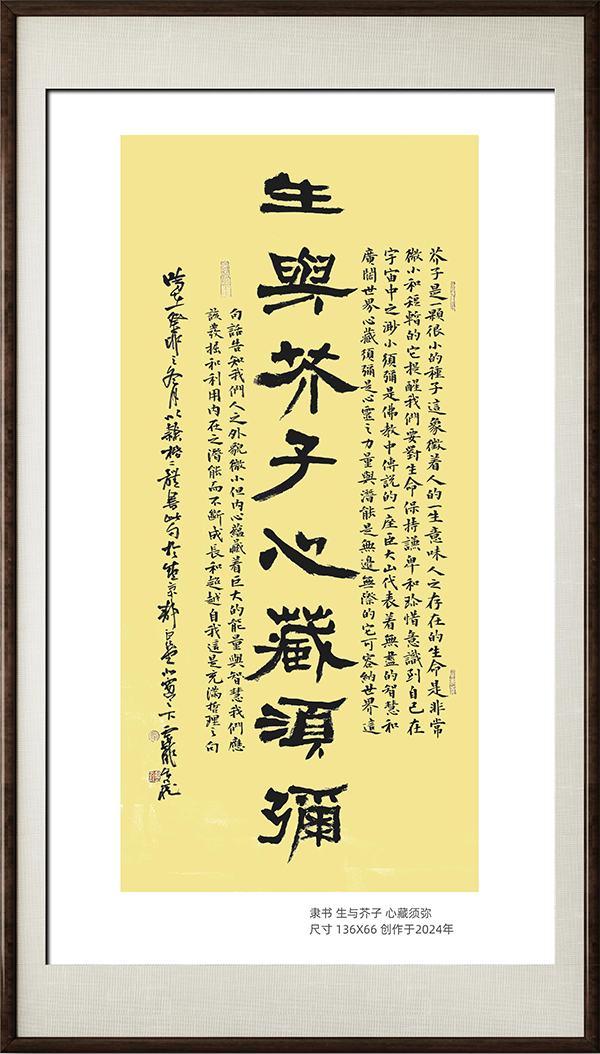 芥子是一顆很小的種子這象徵着人的一生意味人之存在的生命是非常
微小和短暫的它提醒我們要對生命保持謙卑和珍惜意識到自己在
宇宙中之渺小須彌是佛教中傳説的一座巨大山代表着無盡的智慧和
廣闊世界心藏須彌是心靈之力量與潛能是無邊無際的它可容納世界這
生與芥子心藏須彌
句話告知我們人之外貌微小但内心蘊藏着巨大的能量與智慧我們應
該發掘和利用内在之潛能而不斷成長和超越自我這是充滿哲理之句
冬月以隸楷二體書此句於
隶书 生与芥子 心藏须弥
尺寸 136X66 创作于2024年